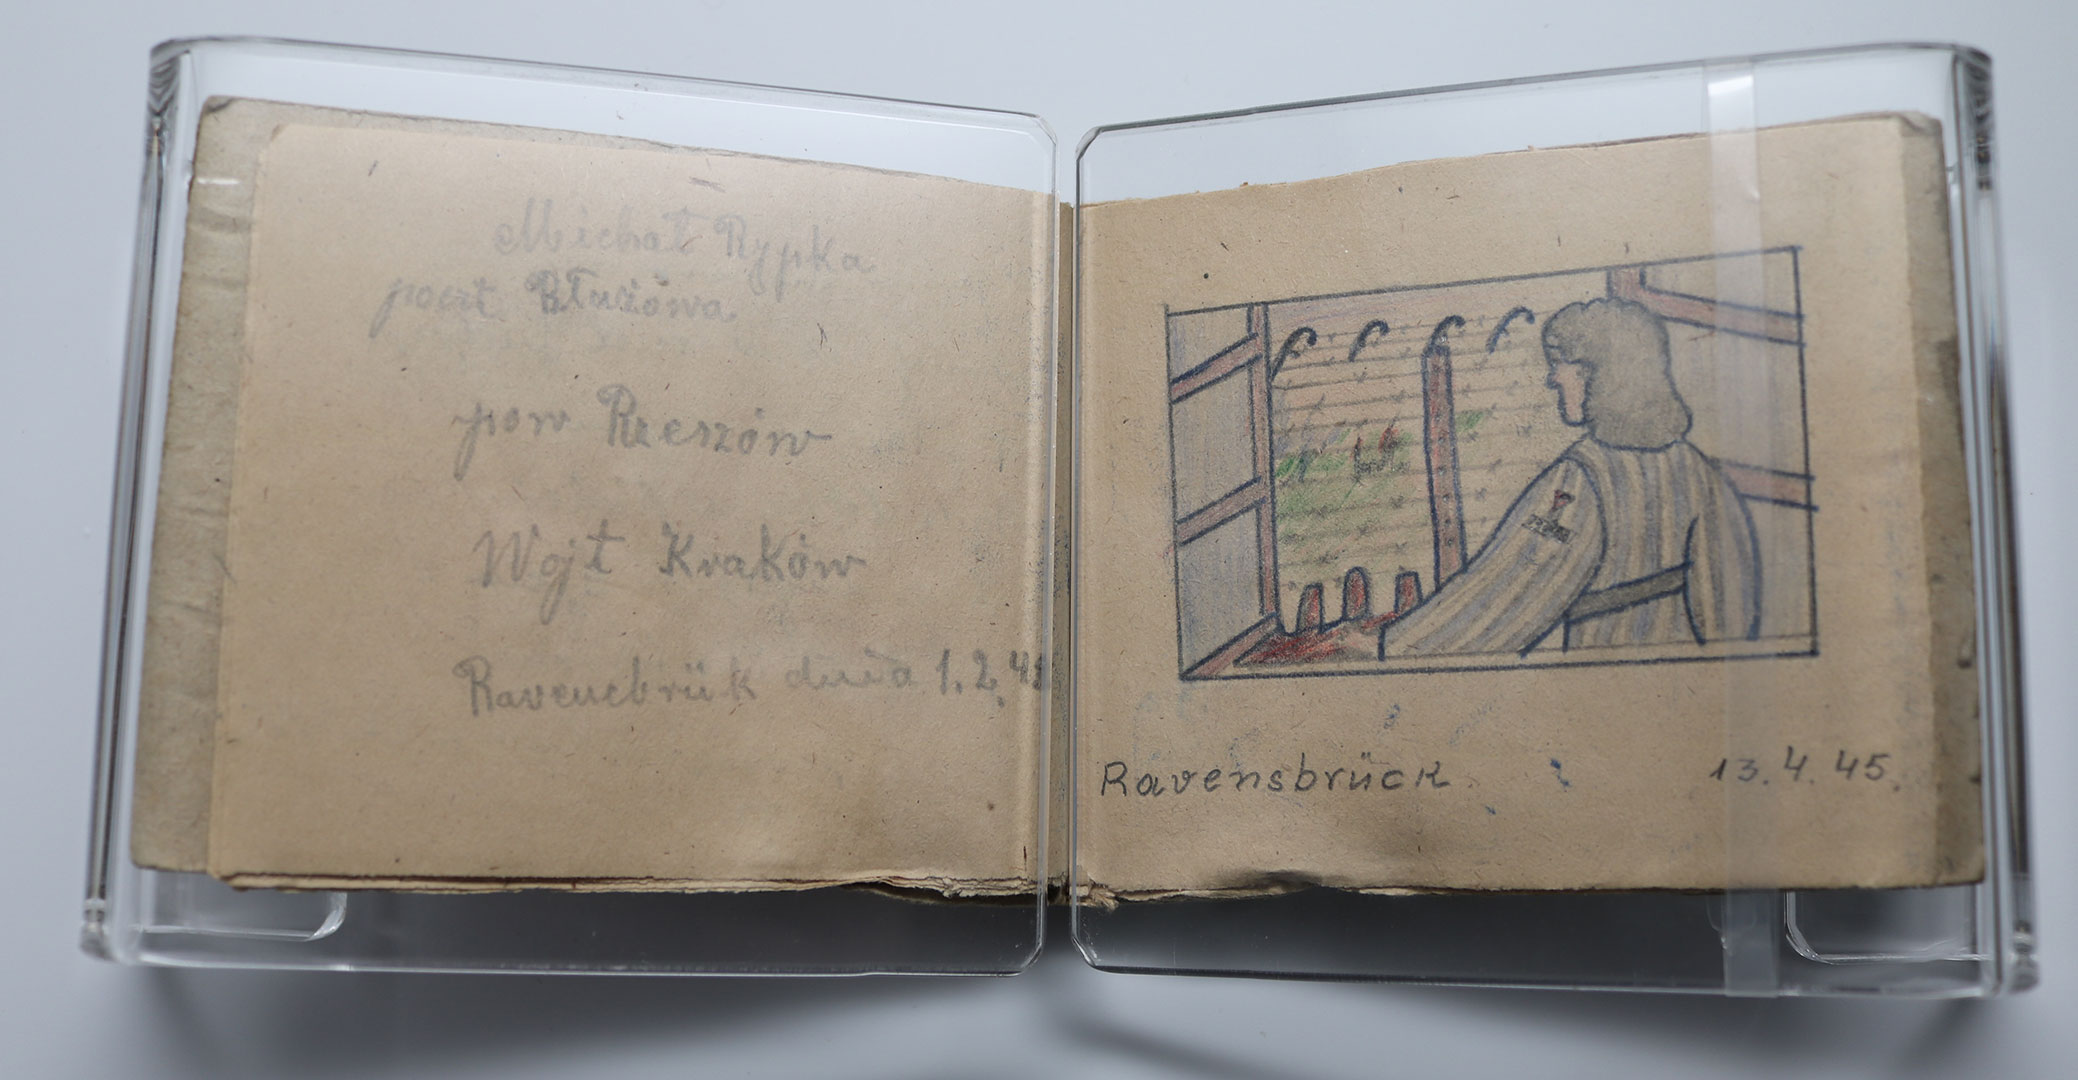 Michał Rypka
poczt Błużowa
pow Rzeszów
Wojt Kraków
Ravenebrük dnia 1.2.45
Ravensbrück 13.4.45.